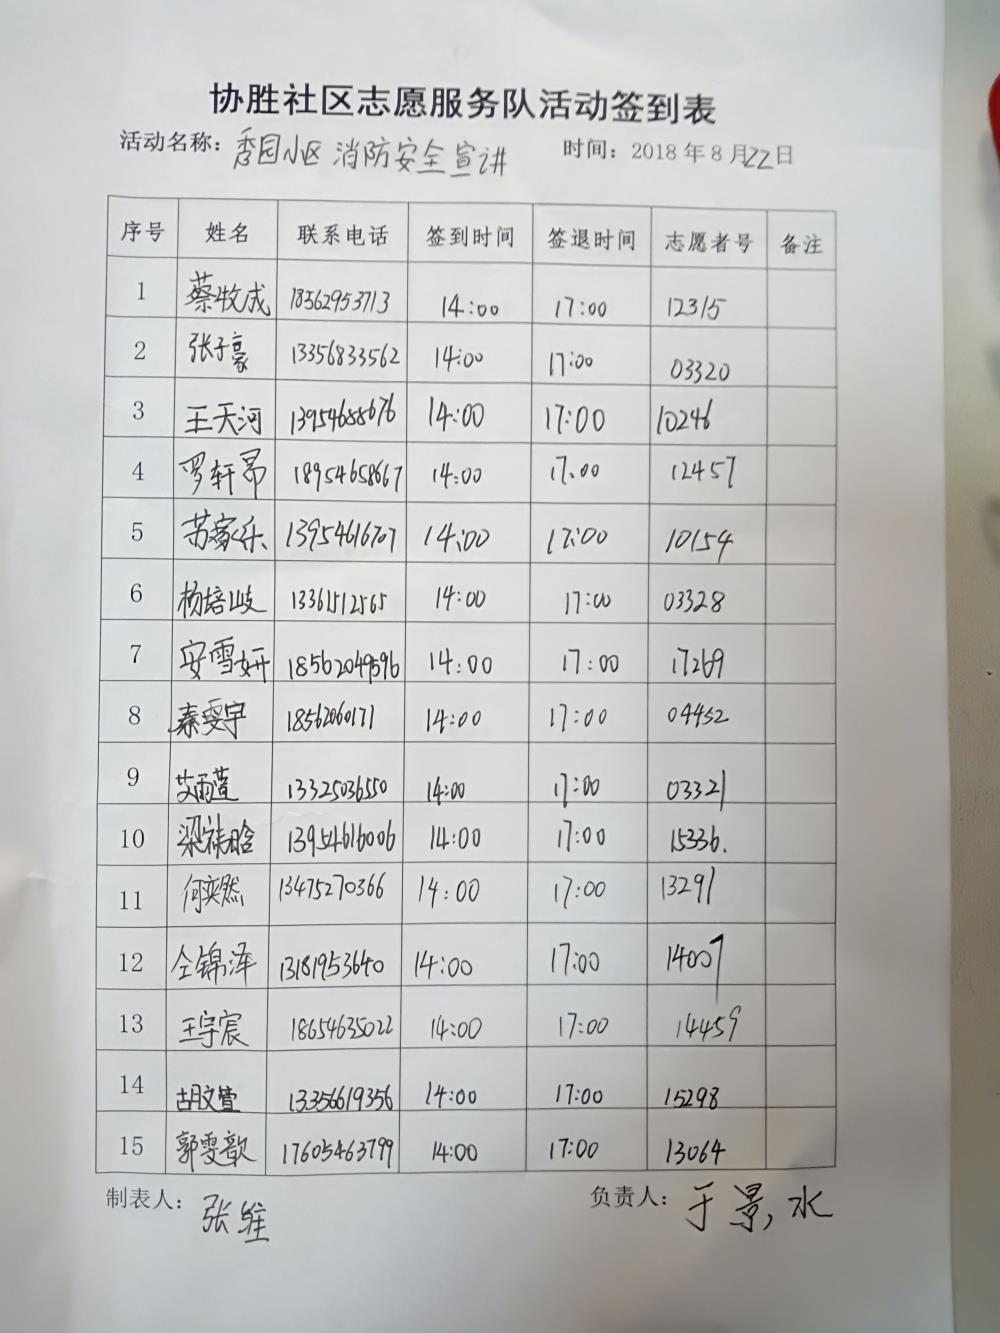 协胜社区志愿服务队活动签到表
活动名称：秀园小区 消防安全宣讲 时间：2018年8月22日
序号 姓名 联系电话 签到时间 签退时间 志愿者号 备注
1 蔡牧成 18562953713 14:00 17:00 12315
2 张子豪 13356833562 14:00 17:00 03320
3 王天河 13954688676 14:00 17:00 10246
4 罗轩昂 18954658667 14:00 17:00 12457
5 苏家乐 13954616707 14:00 17:00 10154
6 杨培岐 13361512565 14:00 17:00 03328
7 安雪妍 18562049596 14:00 17:00 17269
8 秦雯宇 18562060171 14:00 17:00 04452
9 艾雨萱 13325036550 14:00 17:00 03321
10 梁祎晗 13954616006 14:00 17:00 15336.
11 何奕然 13475270366 14:00 17:00 13291
12 仝锦泽 13181953640 14:00 17:00 14007
13 王宇宸 18654635022 14:00 17:00 14459
14 胡文萱 13356619356 14:00 17:00 15298
15 郭雯歆 17605463799 14:00 17:00 13064
制表人：张维 负责人：于景水